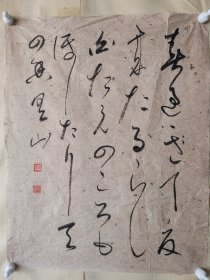 春過きて夏
来たるらし
白たへのころも
ほしたり天
の香具山